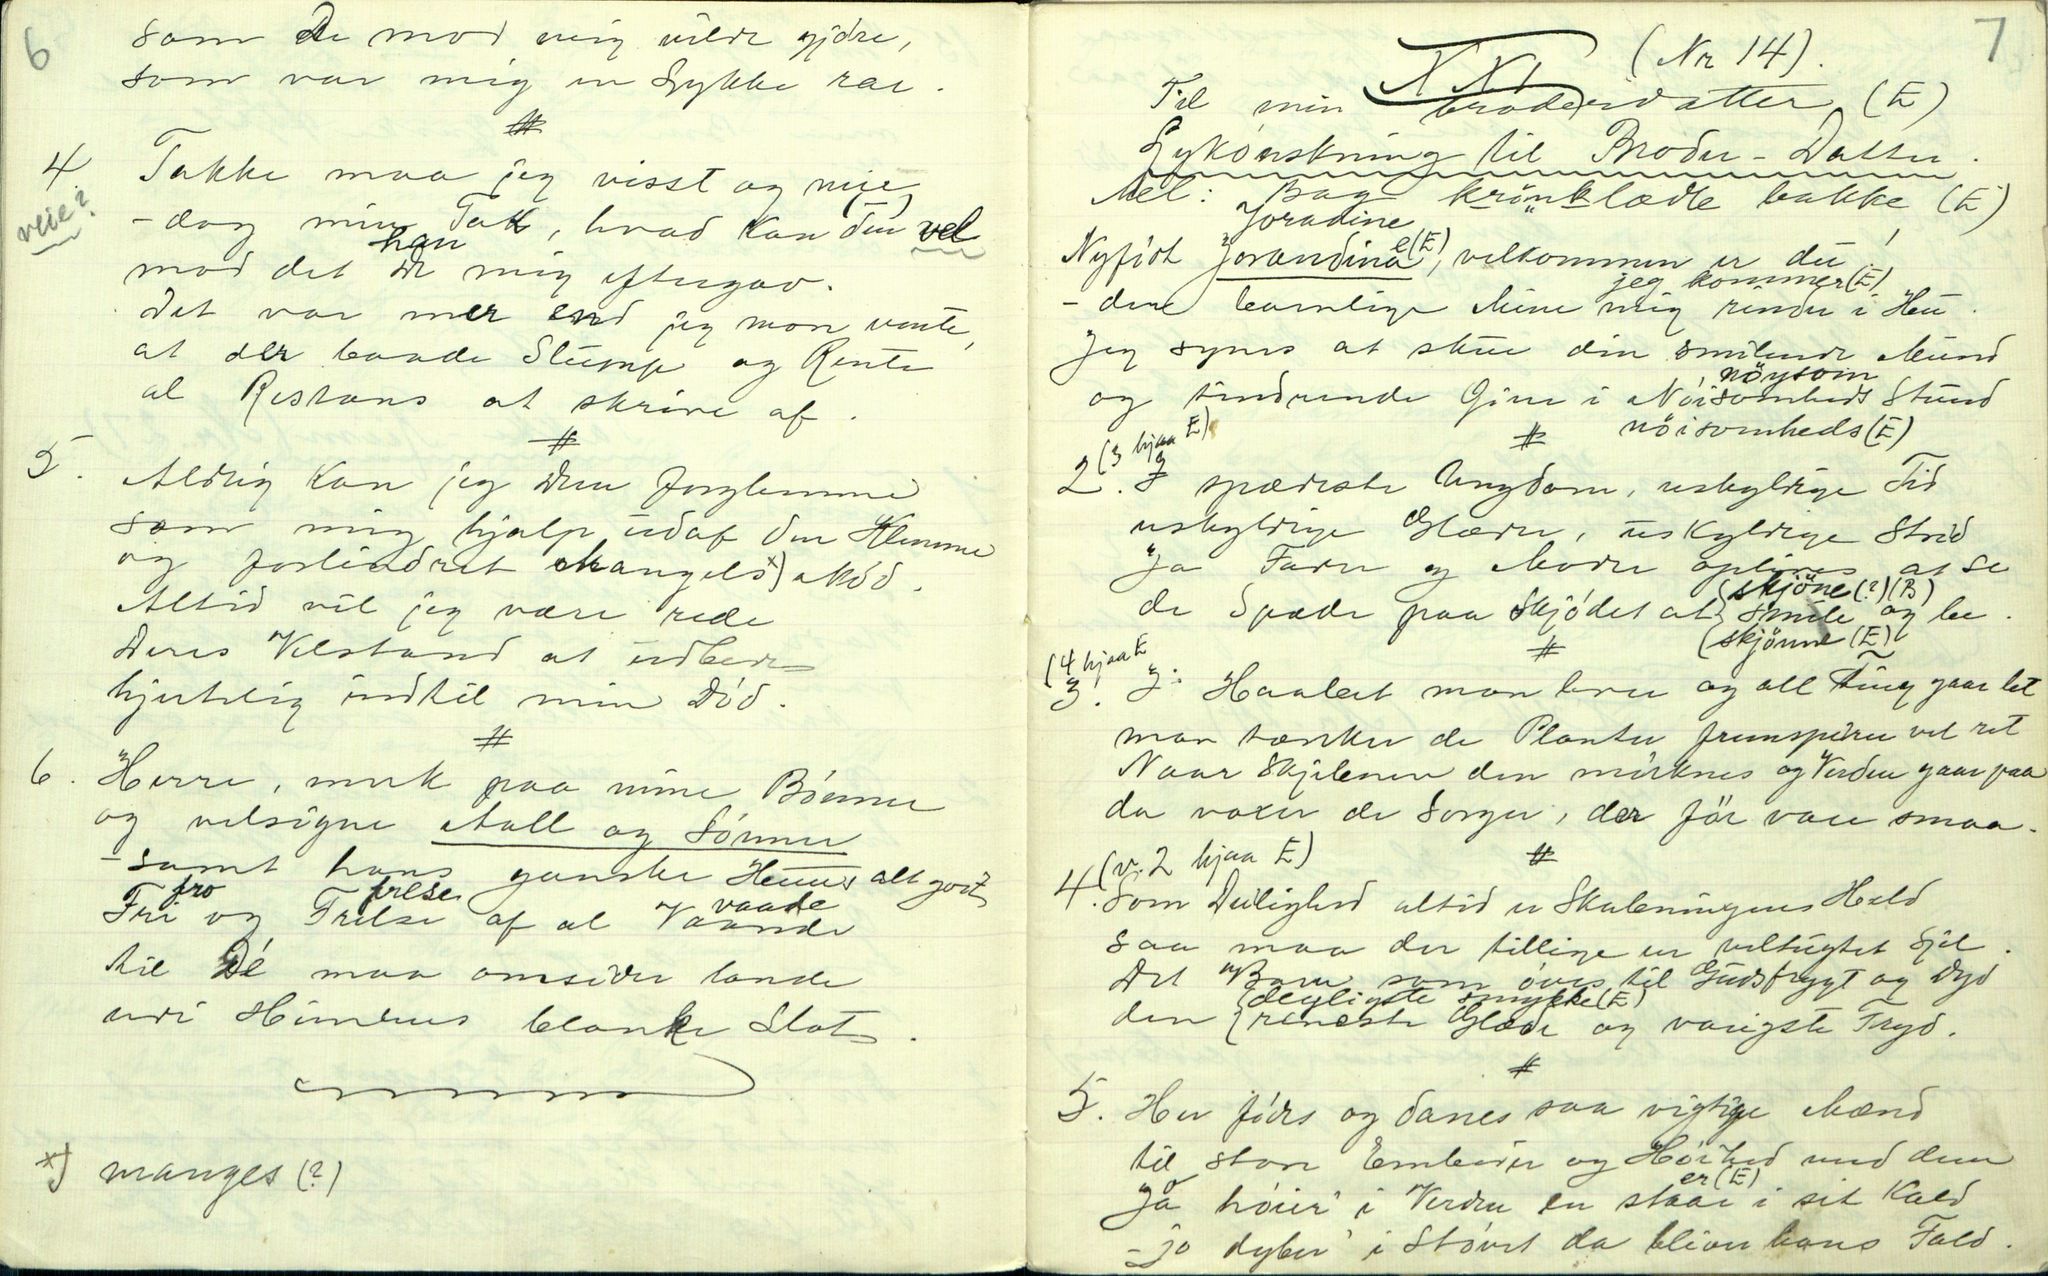 6
som De mod mig vilde gjöre,
som var mig en Lykke rar.
#
4. Takke maa jeg visst og neie
veie?
- dog min Tak, hvad kan den (vel)
han
mod det De mig eftergav.
Det var mer end jeg mon vente,
at der baade Stump og Rente
al Restans at skrive af.
#
5. Aldrig kan jeg Dem forglemme
som mig hjalp udaf den Klemme
og forlindret Mangels x) Nöd.
Altid vil jeg være rede
Deres Velstand at udbede
hjertelig indtil min Död.
#
6. Herre, merk paa mine Bönner
og velsigne Aall og Sönner
- samt hans ganske Huus alt godt
fro frelse vaade
Fri og Frelse af al Vaande
til De maa omsider lande
udi Himlens blanke Slot.
x) manges (?)
7
XXI (Nr 14).
Til min broderdatter (E)
Lykönskning til Broder-Datter.
Mel: Bag krönklædte bakke (E)
Joradine
Nyfödt Jorandina e(E), velkommen er du!
jeg kommer (E)
- den barnlige Mine mig rinder i Hu.
Jeg synes at skue din smilende Mund
nöysom
og tindrende Öine i Nöisomheds Stund
nöisomheds (E)
#
(3 hjaa E)
2. I spædeste Ungdom, uskyldige Tid
uskyldige Glæder, uskyldige Strid
Ja Fader og Moder oplives at se
(skjöne (?) (B)
de Spæde paa Skjödet at smile og lee.
(skjönne (E)
#
(4 hjaa E
3. I Haabet man lever og all Ting gaar let
man tænker de Planter fremspirer vel ret
Naar Skjebnen den mörknes og Verden gaar paa
da voxer de Sorger, der för vare smaa.
#
(v. 2 hjaa E)
4. Som Deilighed altid er Skabningens Held
saa maa der tillige en veltugtet Sjel.
Det Barn som öves til Gudsfrygt og Dyd
deyligste smykke (E)
den reneste Glæde og varigste Fryd.
#
5. Her föds og danes saa vigtige Mænd
til store Embeder og Höihed med dem
er (E)
Jo höier' i Verden en staar i sit Kald
- jo dyber' i Stövet da bliver hans Fald.